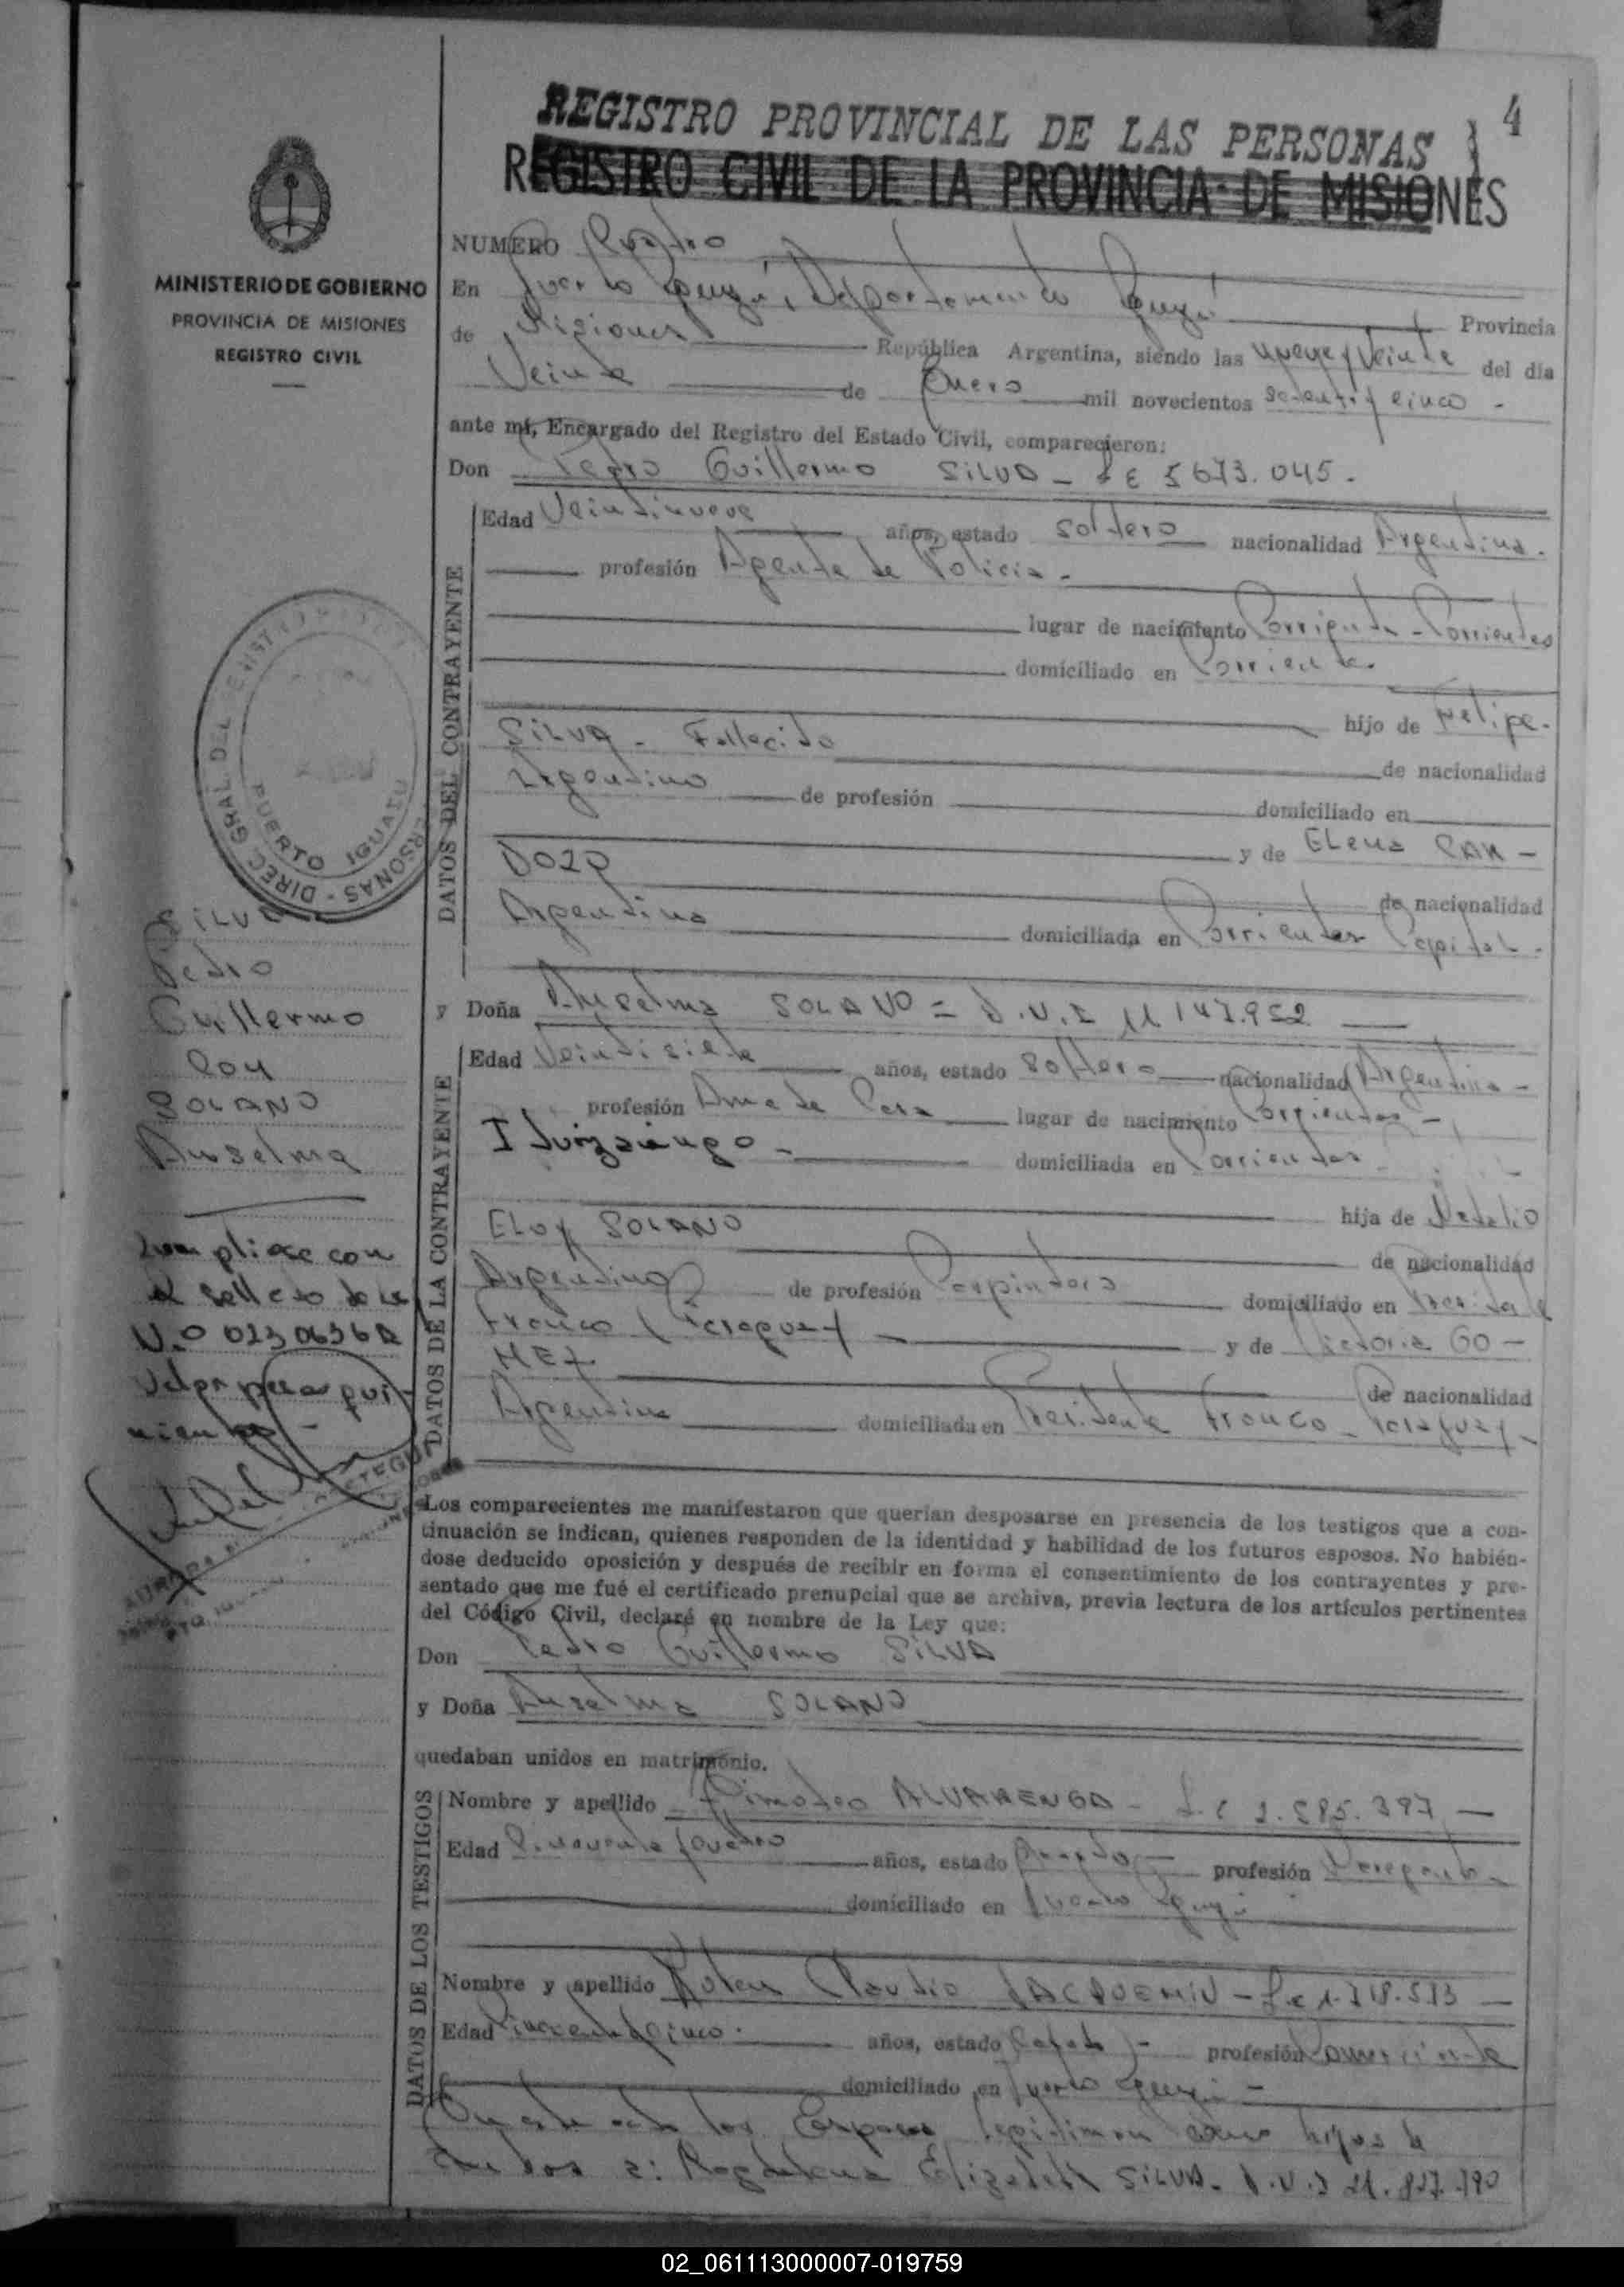 4
REGISTRO PROVINCIAL DE LAS PERSONAS
REGISTRO CIVIL DE LA PROVINCIA DE MISIONES
MINISTERIO DE GOBIERNO
PROVINCIA DE MISIONES
REGISTRO CIVIL
NUMERO Cuatro
En Puerto Iguazú, Departamento Iguazú Provincia
de Misiones República Argentina, siendo las nueve y veinte del día
Veinte de Enero mil novecientos setenta y cinco -
ante mí, Encargado del Registro del Estado Civil, comparecieron:
Don Pedro Guillermo SILVA - L E 5673.045.
DATOS DEL CONTRAYENTE
Edad Veintinueve años, estado soltero nacionalidad Argentina.
profesión Agente de Policia -
lugar de nacimiento Corrientes - Corrientes
domiciliado en Corrientes.
hijo de Felipe.
SILVA - Fallecido de nacionalidad
Argentino de profesión domiciliado en
y de Elena CAR -
DOZO de nacionalidad
Argentina domiciliada en Corrientes Capital.
y Doña Anselma SOLANO = D.N.I 11 147.952
DATOS DE LA CONTRAYENTE
Edad Veintisiete años, estado soltero nacionalidad Argentina -
profesión Ama de Casa lugar de nacimiento Corrientes -
Ituizaingo - domiciliada en Corrientes
hija de
ELOY SOLANO de nacionalidad
Argentino de profesión Carpintero domiciliado en Presidente
Franco (Paraguay - y de Victoria GO -
MEZ de nacionalidad
Argentina domiciliada en Presidente Franco - Paraguay -
Los comparecientes me manifestaron que querían desposarse en presencia de los testigos que a con-
tinuación se indican, quienes responden de la identidad y habilidad de los futuros esposos. No habién-
dose deducido oposición y después de recibir en forma el consentimiento de los contrayentes y pre-
sentado que me fué el certificado prenupcial que se archiva, previa lectura de los artículos pertinentes
del Código Civil, declaré en nombre de la Ley que:
Don Pedro Guillermo SILVA
y Doña Anselma SOLANO
quedaban unidos en matrimonio.
DATOS DE LOS TESTIGOS
Nombre y apellido Timoteo ALVARENGA - L.E 2.585.397 -
Edad Cincuenta y cuatro años, estado profesión
domiciliado en Puerto Iguazú
Nombre y apellido Ruben Claudio JACQUEMIN - L.E 1.718.513 -
Edad Cincuenta y cinco. años, estado Casado - profesión Comerciante
domiciliado en Puerto Iguazú -
En este acto los Esposos legitiman como hijos de
ambos a: Magdalena Elizabeth SILVA - D.N.I 21.827.790
DIREC. GRAL DEL PERSONAS
PUERTO IGUAZU
SILVA
Pedro
Guillermo
Con
SOLANO
Anselma
Cumpliose con
el sellado de ley
N.o 02306368
02_061113000007-019759